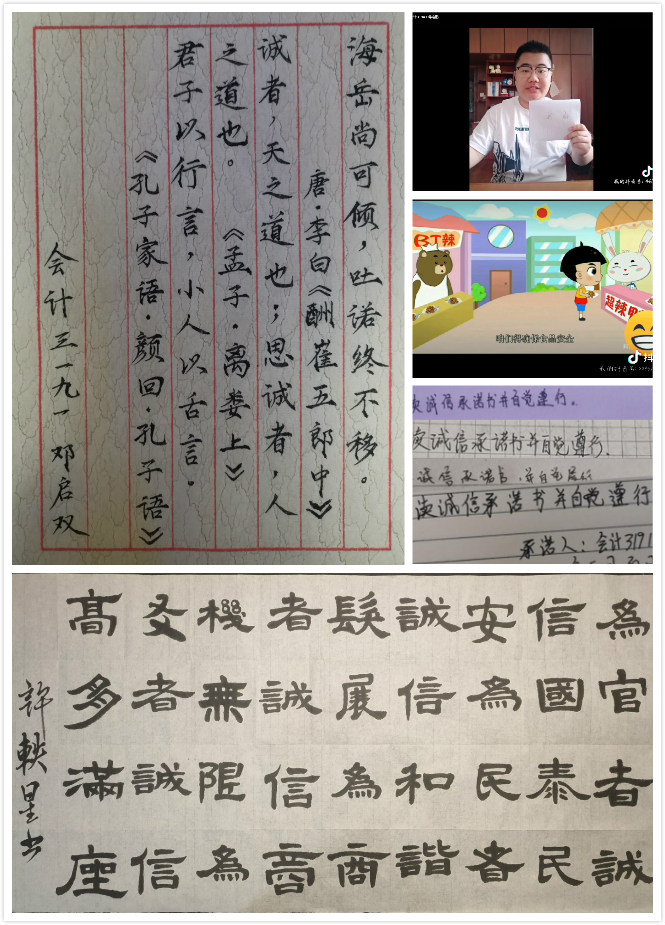 海岳尚可倾，吐诺终不移。
唐·李白《酬崔五郎中》
诚者，天之道也；思诚者，人
之道也。 《孟子·离娄上》
君子以行言，小人以舌言。
《孔子家语·颜回·孔子语》
会计三一九一 邓启双
我的抖音号:
BT辣
超辣
咱们得确保食品安全
抖
诚信承诺书并自觉遵行。
诚信承诺书并自觉遵行.
诚信承诺书,并自觉
诚信承诺书并自觉遵行
承诺人：会计3191
為官者誠
信國泰民
安為民者
誠信和諧
髮展為商
者誠信商
棧無限為
友者誠信
髙多滿座
許軼星书